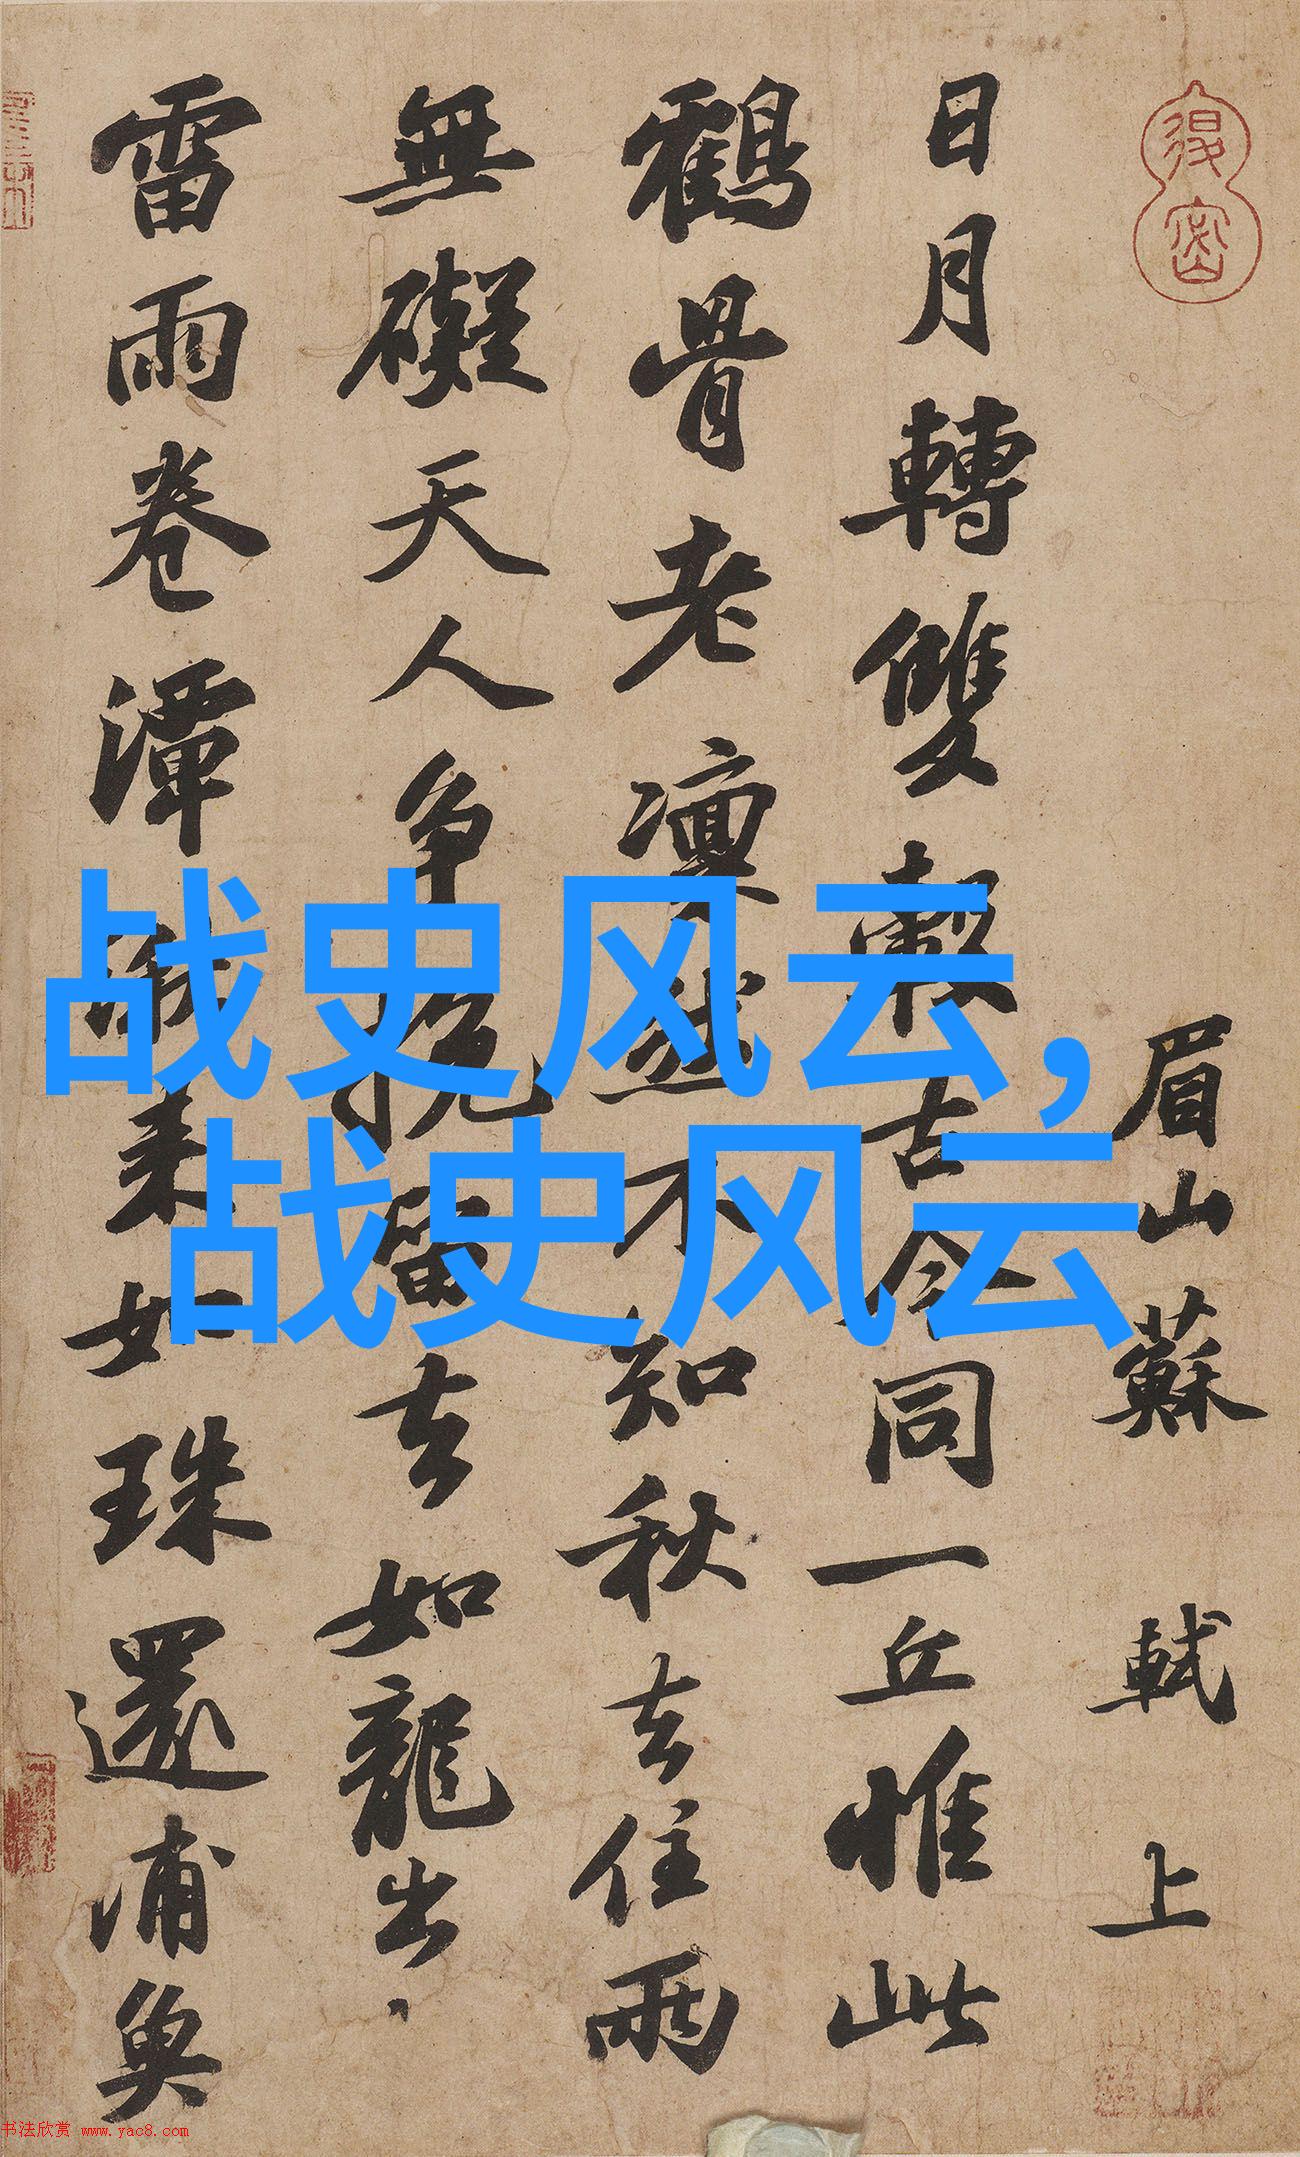 眉山蘇軾上
日月轉雙轂古今同一丘惟此
鶴骨老凜然不知秋去住兩
無礙天人争挽留去如龍出
雷雨卷潭湫来如珠還浦魚
战史风云,
战史风云
书法欣赏 www.yac8.com